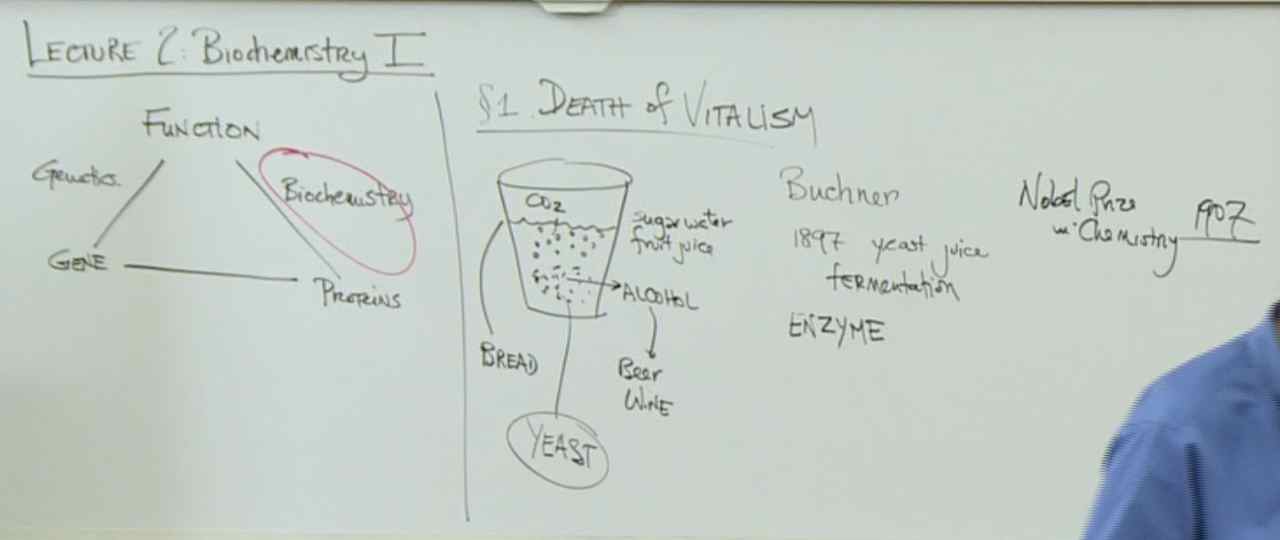 LECTURE 2: Biochemistry I
FUNCTION
Genetics.
Biochemistry
GENE
PROTEINS
§1. DEATH of VITALISM
CO2
sugar water
fruit juice
ALCOHOL
BREAD
Beer
WINE
YEAST
Buchner
1897 yeast juice
fermentation
ENZYME
Nobel Prize
in Chemistry 1907